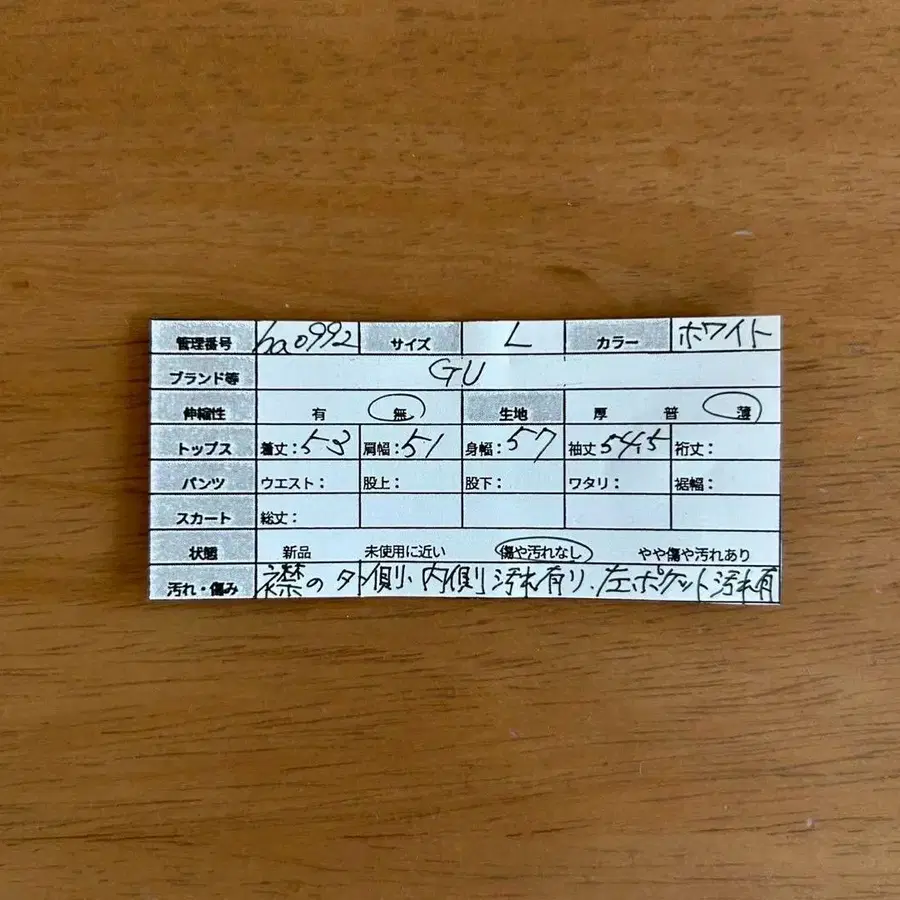 管理番号 ha0992 サイズ L カラー ホワイト
ブランド等 GU
伸縮性 有 無 生地 厚 普 薄
トップス 着丈:53 肩幅:51 身幅:57 袖丈54.5 裄丈:
パンツ ウエスト: 股上: 股下: ワタリ: 裾幅:
スカート 総丈:
状態 新品 未使用に近い 傷や汚れなし やや傷や汚れあり
汚れ・傷み 襟の外側、内側汚れ有り、左ポケット汚れ有